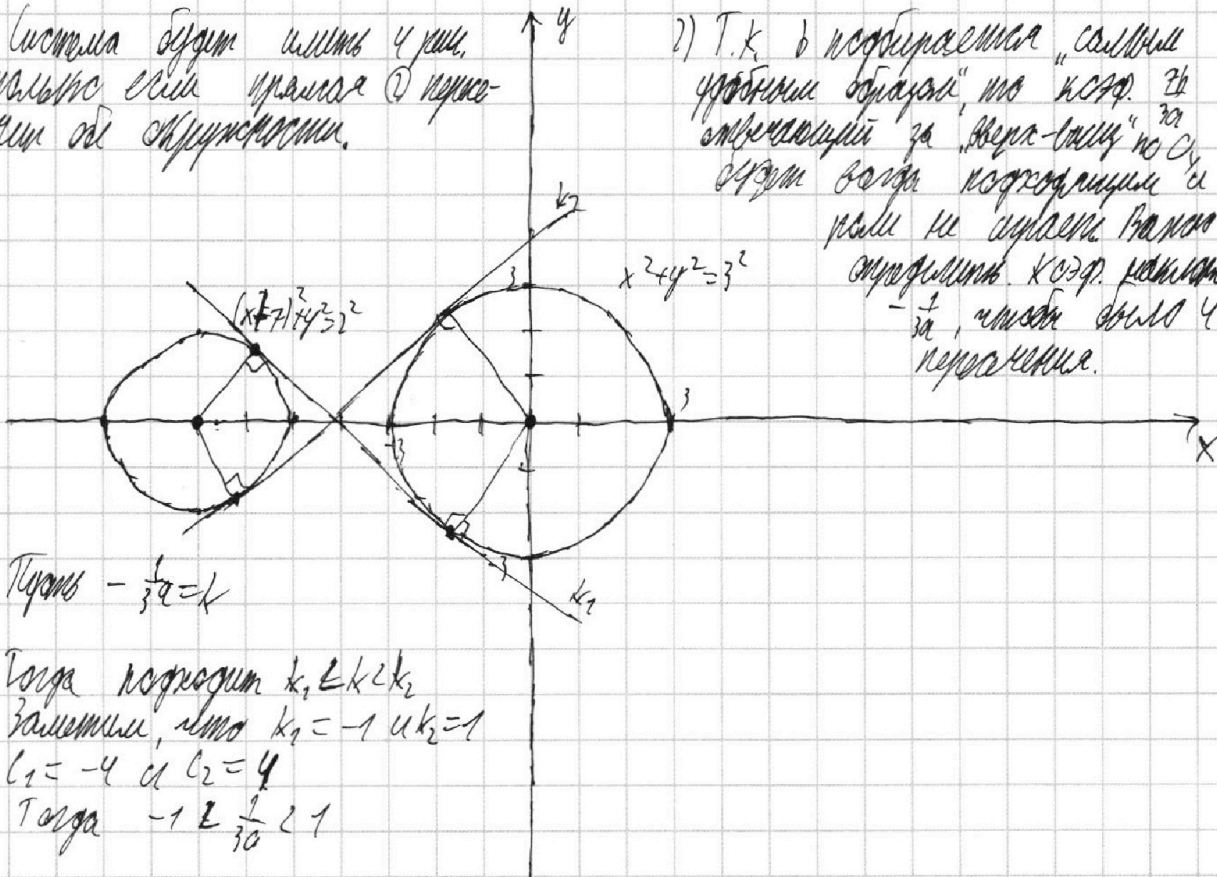 Система будет иметь 4 реш.
только если прямая ② пересе-
обе окружности.
y
2) Т.к. b подбирается "самым
удобным образом", то коэф. 7b/3a
отвечающий за "вверх-вниз" по Oy
будет всегда подходящим и
роли не играет. Важно
определить коэф. наклона
-1/3a, чтобы было 4
пересечения.
k₂
x²+y²=3²
(x+7)²+y²=2²
3
3
-3
-3
x
k₁
Пусть -1/3a = k
Тогда подходит k₁ < k < k₂
Заметим, что k₁ = -1 и k₂ = 1
C₁ = -4 и C₂ = 4
Тогда -1 < 1/3a < 1